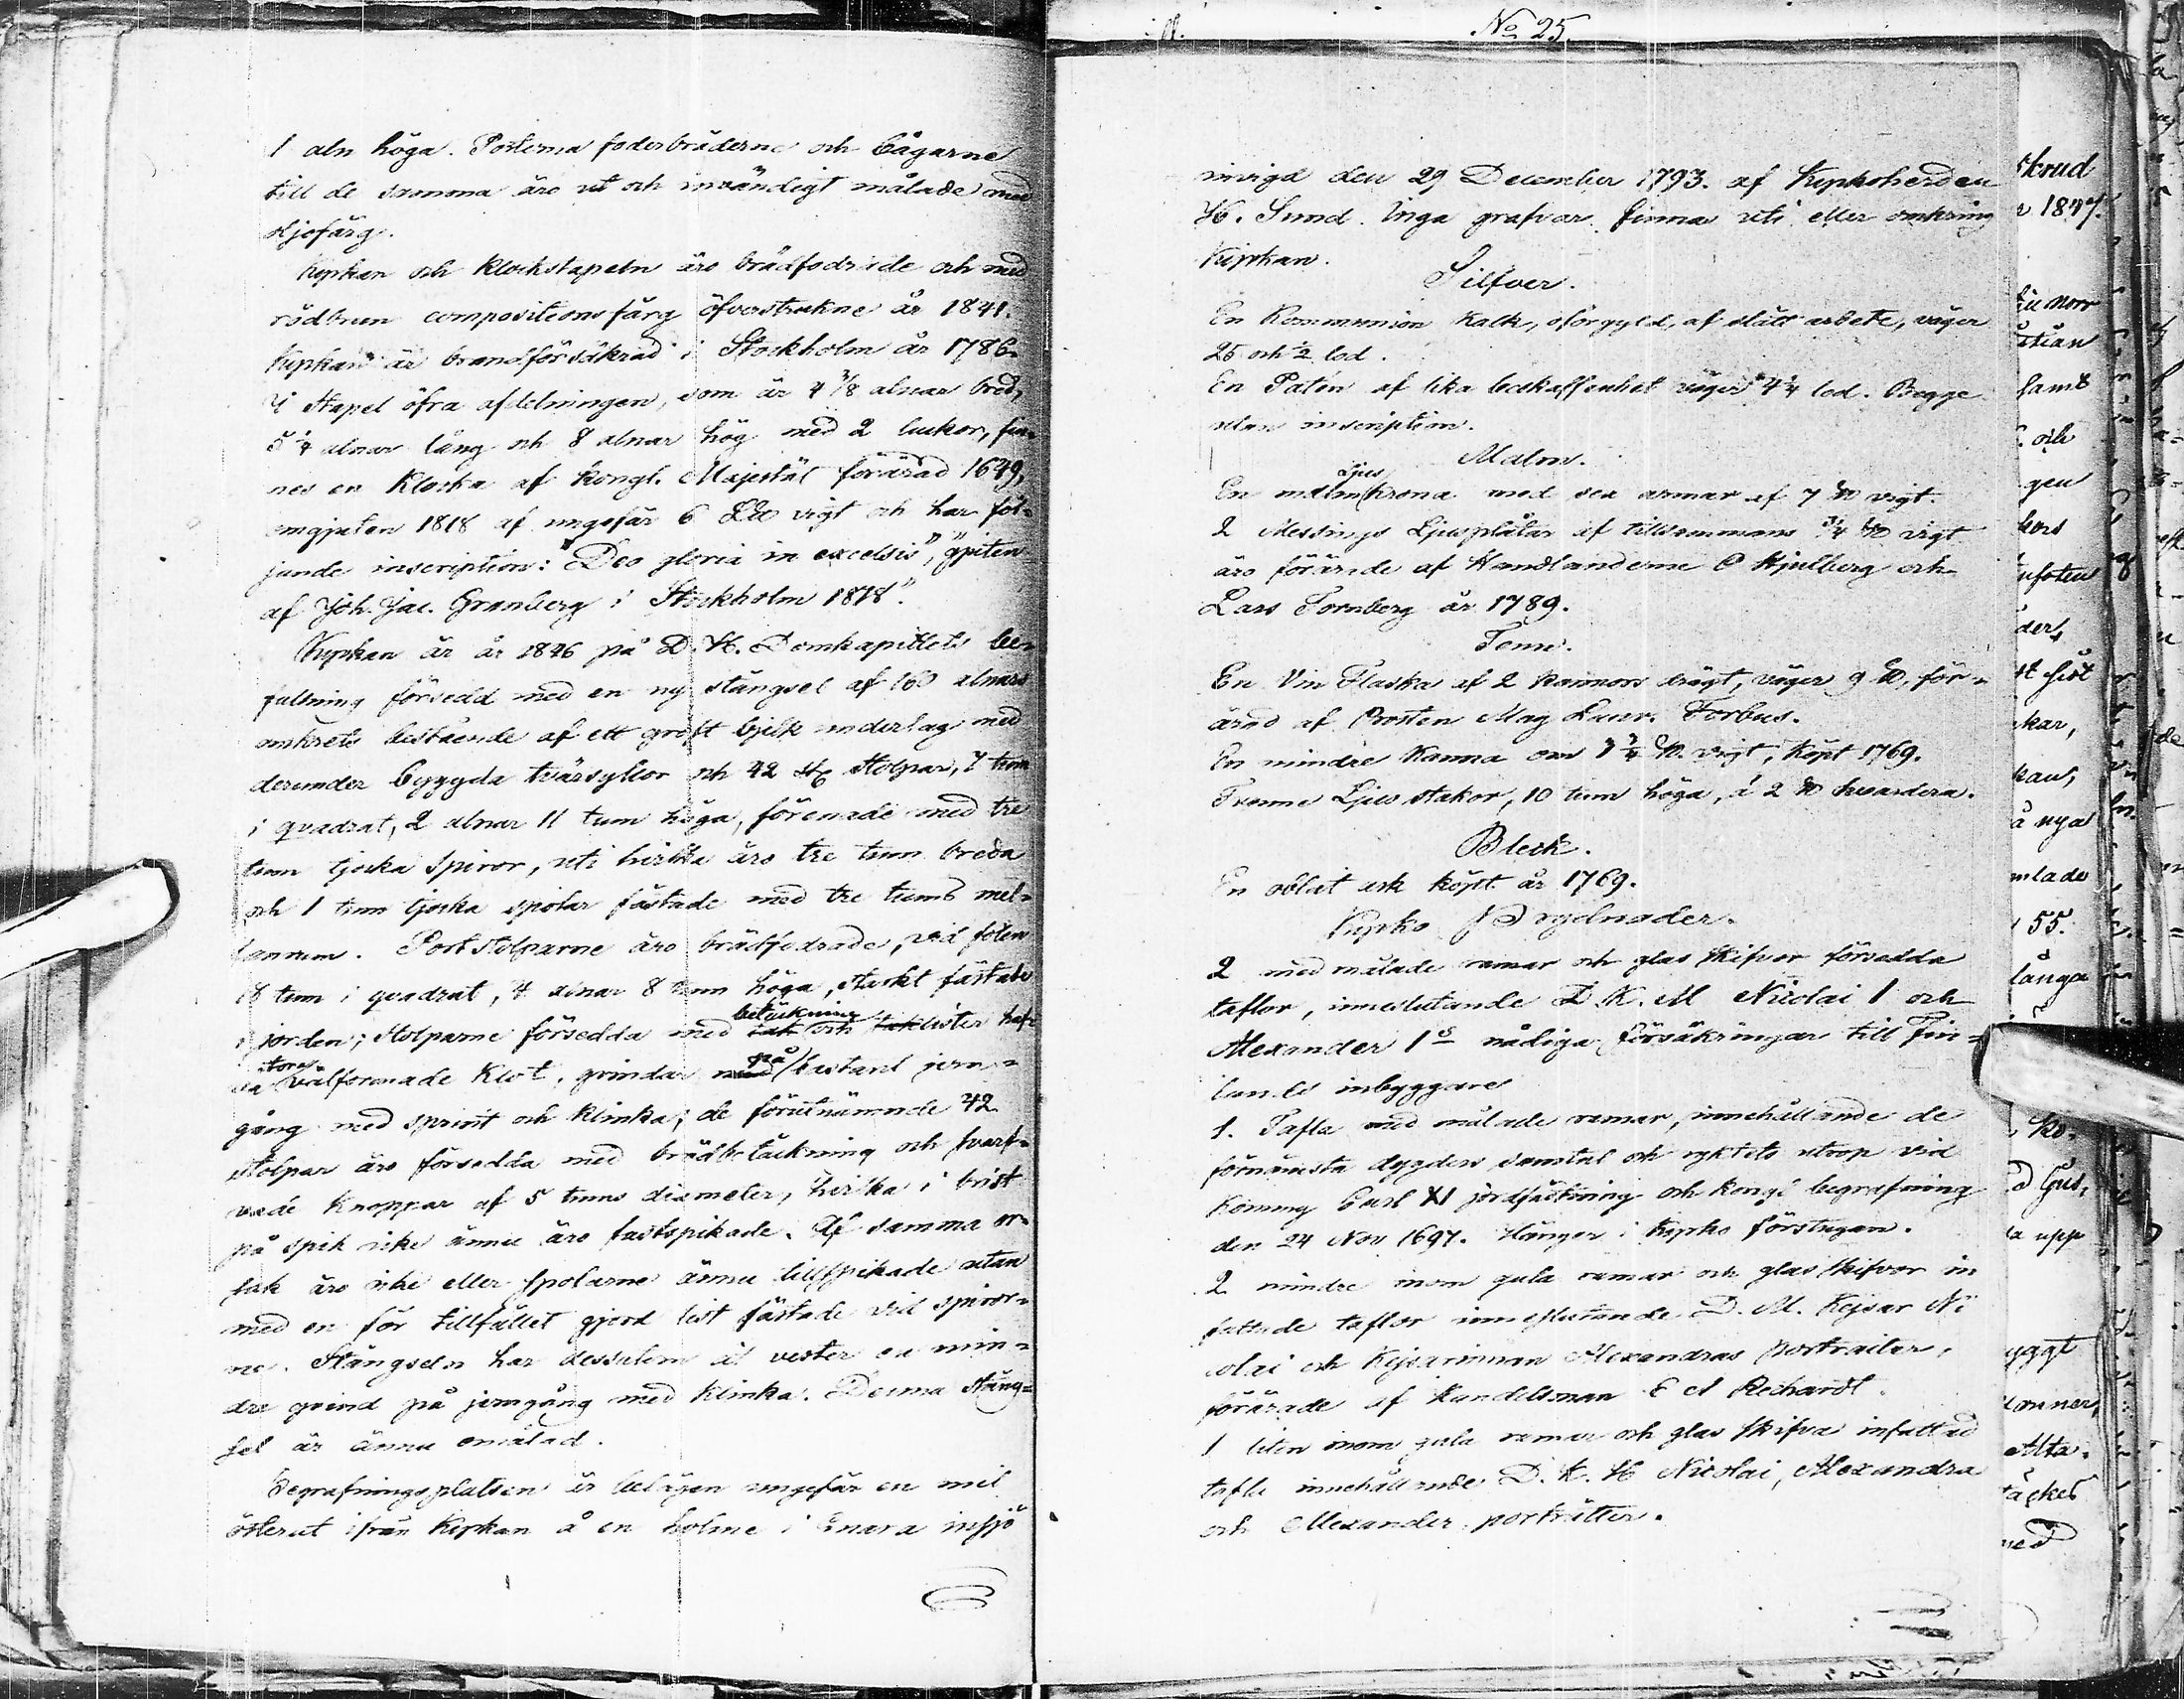 1 aln höga. Posterna foderbräderne och bågarne
till de samma äro ut och invändigt målade med
oljefärg.
Kyrkan och Klockstapeln äro brädfodrade och med
rödbrun compositions färg öfverstrukne år 1841.
Kyrkan är brandförsäkrad i Stockholm år 1786.
I Stapel öfra afdelningen, som är 4 3/8 alnar bred,
5 1/4 alnar lång och 8 alnar hög med 2 luckor, fin=
nes en Klocka af Kongl. Majestät förärad 1649,
omgjuten 1818 af ungefär 6 vigt och har föl=
jande inscription: "Deo gloria in excelsis", "gjuten
af Joh. Jac. Granberg i Stockholm 1818".
Kyrkan är år 1846 på D. H. Domkapitlets be=
fallning försedd med en ny stängsel af 160 alnars
omkrets bestående af ett groft bjelk underlag med
derunder byggda tvärsyllor och 42 st stolpar, 7 tum
i qvadrat, 2 alnar 11 tum höga, förenade med tre
tum tjocka Spiror, uti hvilka äro tre tum breda
och 1 tum tjocka spolar fästade med tre tums mel=
lanrum. Portstolparne äro brädfodrade, vid foten
18 tum i qvadrat, 4 alnar 8 tum höga, starkt fästade
betäckning
i jorden; Stolparne försedda med tak och taklister haf=
stora på
va välformade Klot, grindar med bastant jern=
gång med sprint och klinka; de förutnämnde 42
stolpar äro försedda med brädbetäckning och svarf=
vade Knoppar af 5 tums diameter, hvilka i brist
på spik icke ännu äro fastspikade. Af samma or=
sak äro icke eller spolarne ännu tillspikade utan
med en för tillfället gjord list fästade vid spiror=
ne. Stängseln har dessutom åt vester en min=
dre grind på jerngång med Klinka. Denna stäng=
sel är ännu omålad.
Begrafningsplatsen är belägen ungefär en mil
österut ifrån Kyrkan å en holme i Enara insjö
No 25.
invigd den 29 December 1793. af Kyrkoherden
H. Sund. Inga grafvar finnas uti eller omkring
Kyrkan.
Silfver.
En Kommunion Kalk, oförgyld, af slätt arbete, väger
25 och 1/2 lod.
En Patén af lika beskaffenhet väger 4 1/4 lod. Begge
utan inscription.
Malm.
Ljus
En malm Krona med sex armar af 7 vigt.
2 Messings Ljusplåtar af tillsammans 3/4 vigt
äro förärade af Handlanderne O Kjellberg och
Lars Tornberg år 1789.
Tenn.
En Vin Flaska af 2 Kannors drägt, väger 9, för=
ärad af Prosten Mag Laur. Forbus.
En mindre Kanna om 3 3/4 vigt, Köpt 1769.
Tvenne Ljusstakar, 10 tum höga, à 2 hvardera.
Bleck.
En oblat ask köpt år 1769.
Kyrko Prydnader.
2 med målade ramar och glas skifvor försedda
taflor, inneslutande D. K. M Nicolai I och
Alexander I s nådiga Försäkringar till Fin=
lands inbyggare
1. Tafla med målade ramar, innehållande de
förnämsta dygders samtal och ryktets utrop vid
Konung Carl XI jordfästning och Kongl begrafning
den 24 Nov 1697. Hänger i Kyrko förstugan.
2 mindre inom gula ramar och glas skifvor in
fattade taflor inneslutande D. M. Kejsar Ni
colai och Kejsarinnan Alexandras portraiter,
förärade af Handelsman E A Rechardt.
1 liten inom gula ramar och glas skifva infattad
tafla innehållande D. K. H Nicolai, Alexandra
och Alexander porträtter.
skrud
1847.
norr
samt
och
gen
kors
der,
kar,
å nya
mlade
55.
långa
upp
yggt
Alta=
täcket
med